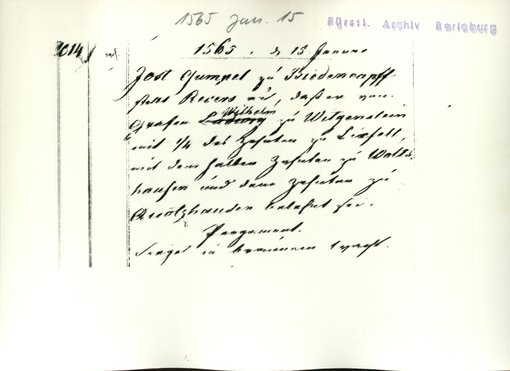 1565 Jan. 15
Fürstl. Archiv Berleburg
2014
1565. d 15 Januar
Jost Gumpel zu Friedemapff
Revers daß er von
Grafen Ludwig Wilhelm zu Witgenstein
mit 1/4 des Zehnten zu Lixfelt,
mit dem halben Zehnten zu Walts
hausen und dem Zehnten zu
belehnt sei.
Pergament.
Siegel in braunem Wachs.